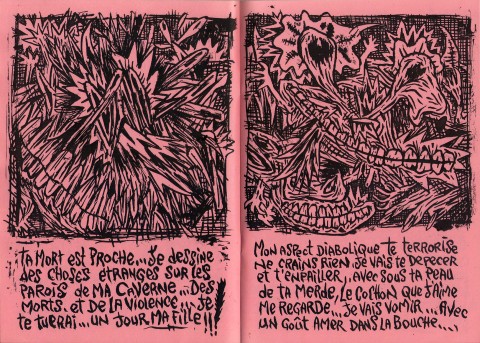 TA MORT EST PROCHE... JE DESSINE
DES CHOSES ÉTRANGES SUR LES
PAROIS DE MA CAVERNE... DES
MORTS, ET DE LA VIOLENCE... JE
TE TUERAI... UN JOUR MA FILLE!!!
MON ASPECT DIABOLIQUE TE TERRORISE
NE CRAINS RIEN. JE VAIS TE DEPECER
ET T'ENPAILLER, AVEC SOUS TA PEAU
DE TA MERDE, LE COCHON QUE J'AIME
ME REGARDE... JE VAIS VOMIR... AVEC
UN GOÛT AMER DANS LA BOUCHE....